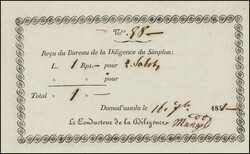 N.º 88.
Reçu du Bureau de la Diligence du Simplon:
L. 1 Rps.- pour 2. Sabots
" " jour
Total " 1 "
Domod'ossola le 16.
Le Conducteur de la Diligence